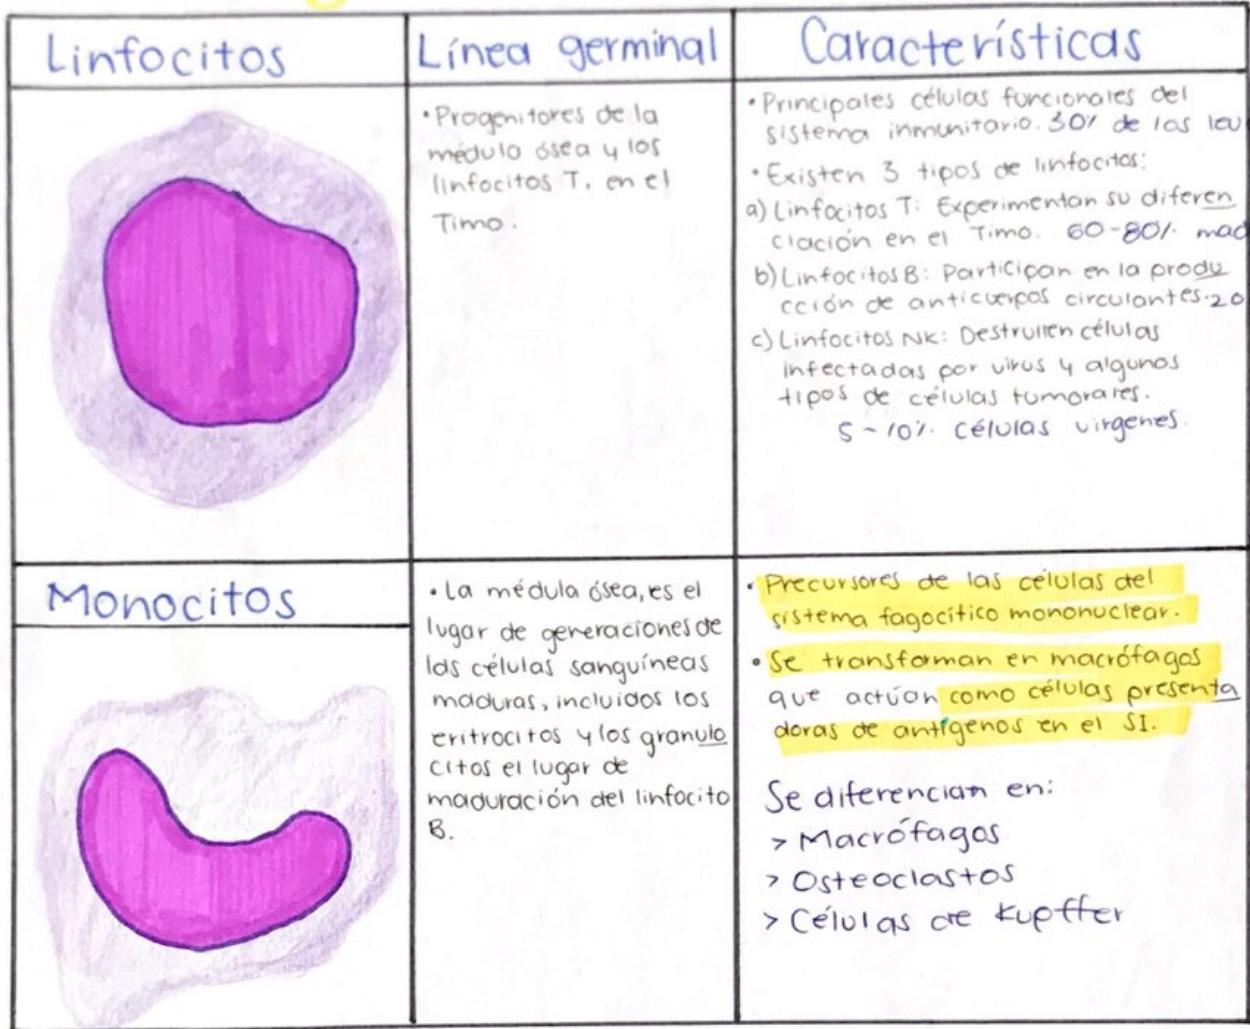 Linfocitos
Línea germinal
Características
• Progenitores de la
médula ósea y los
linfocitos T, en el
Timo.
• Principales células funcionales del
sistema inmunitario. 30% de los leu
• Existen 3 tipos de linfocitos:
a) Linfocitos T: Experimentan su diferen
ciación en el Timo. 60-80% mad
b) Linfocitos B: Participan en la produ
cción de anticuerpos circulantes. 20
c) Linfocitos NK: Destrullen células
infectadas por virus y algunos
tipos de células tumorales.
5-10% células virgenes.
Monocitos
• La médula ósea, es el
lugar de generaciones de
las células sanguíneas
maduras, incluidos los
eritrocitos y los granulo
citos el lugar de
maduración del linfocito
B.
• Precursores de las células del
sistema fagocítico mononuclear.
• Se transforman en macrófagos
que actúan como células presenta
doras de antígenos en el SI.
Se diferencian en:
> Macrófagos
> Osteoclastos
> Células de Kupffer